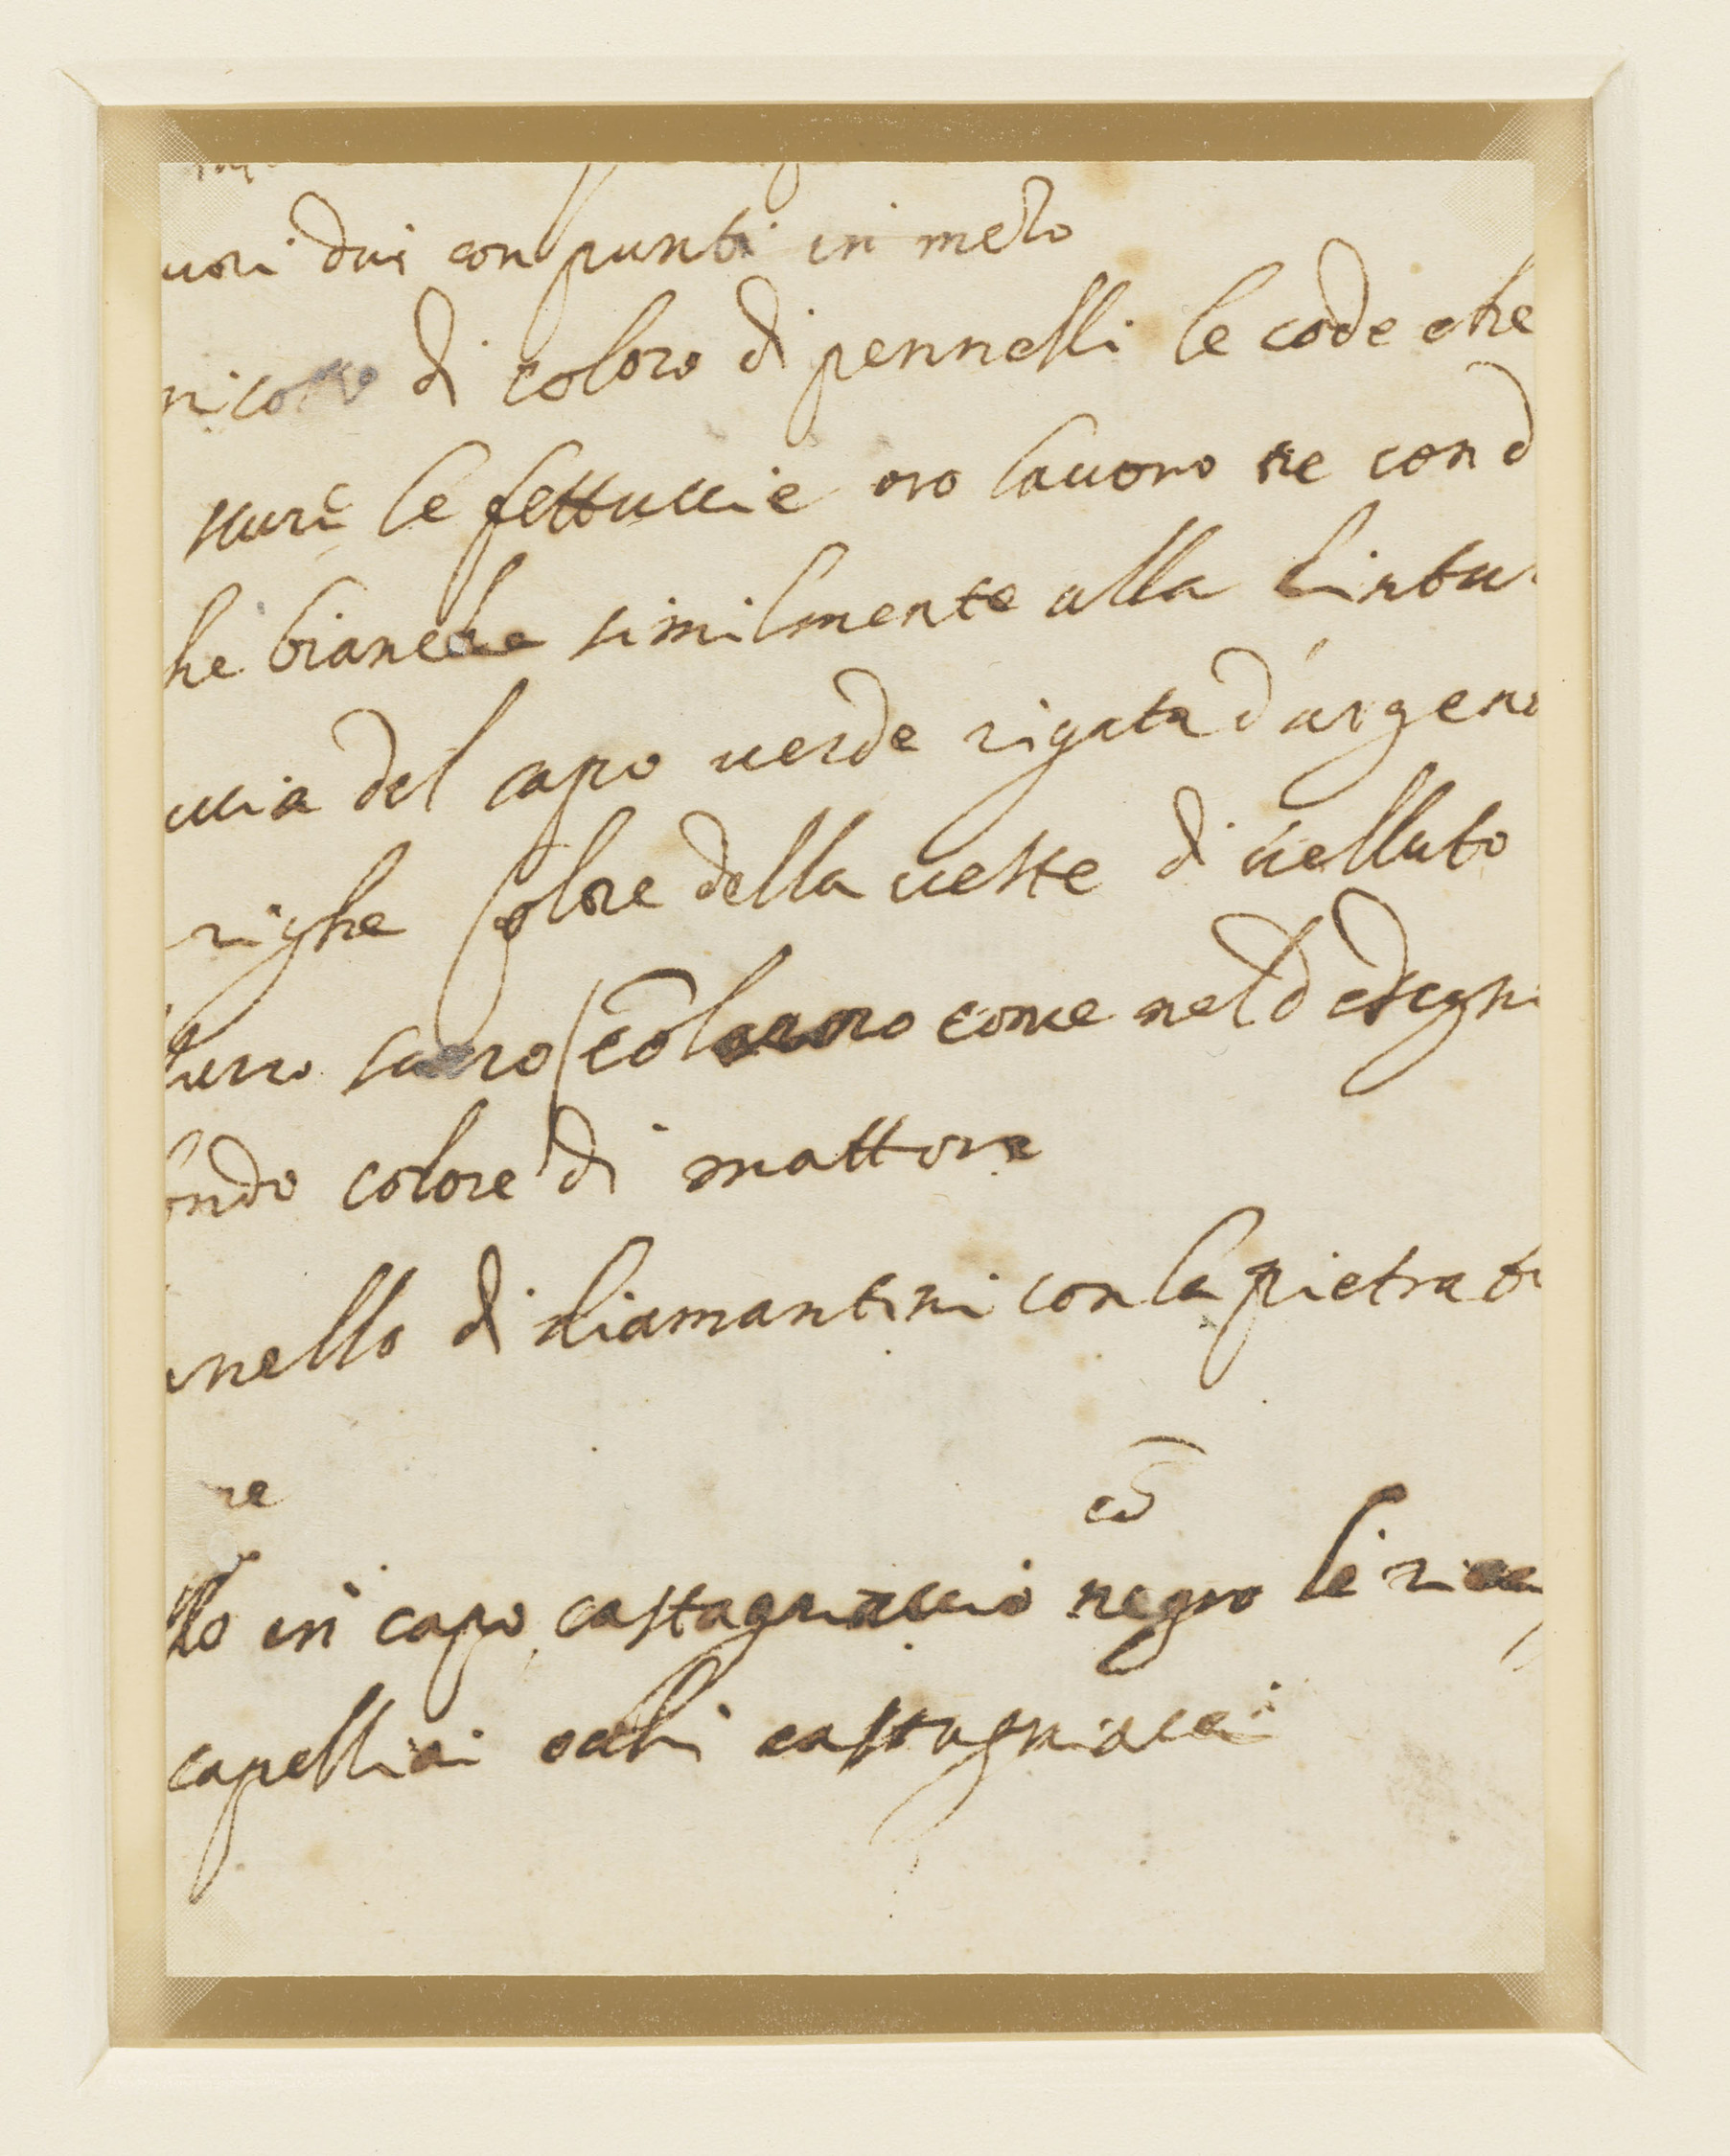 uori dui con punti in mezo
di coloro di pennelli le code che
scuri le fettuccie oro lauoro ne con d
he bianche similmente alla cintu
uccia del capo uerde rigata d'argen
righe colore della ueste di uelluto
come nel desegn
ondo colore di mattone
nello di diamantini con la pietra
re
cō
llo in capo castagnaccio negro le
capelli ai occhi castagniacci